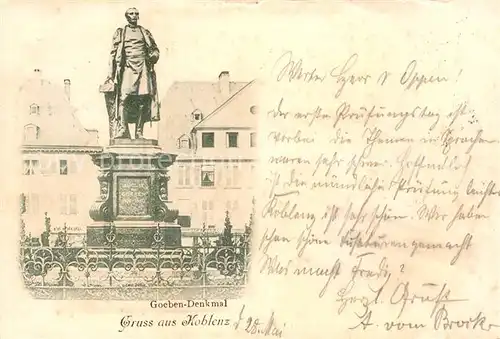 Werter Herr v Oppen!
Der erste Prüfungstag ist
vorbei die Themen in Sprachen
waren sehr schön. Hoffentlich
ist die mündliche Prüfung leichter
Koblenz ist sehr schön. Wir haben
schon schöne gemacht
Was macht Fredy?
Herzl. Gruß
A. vom Brock
Goeben-Denkmal
Gruss aus Koblenz d 28. Mai